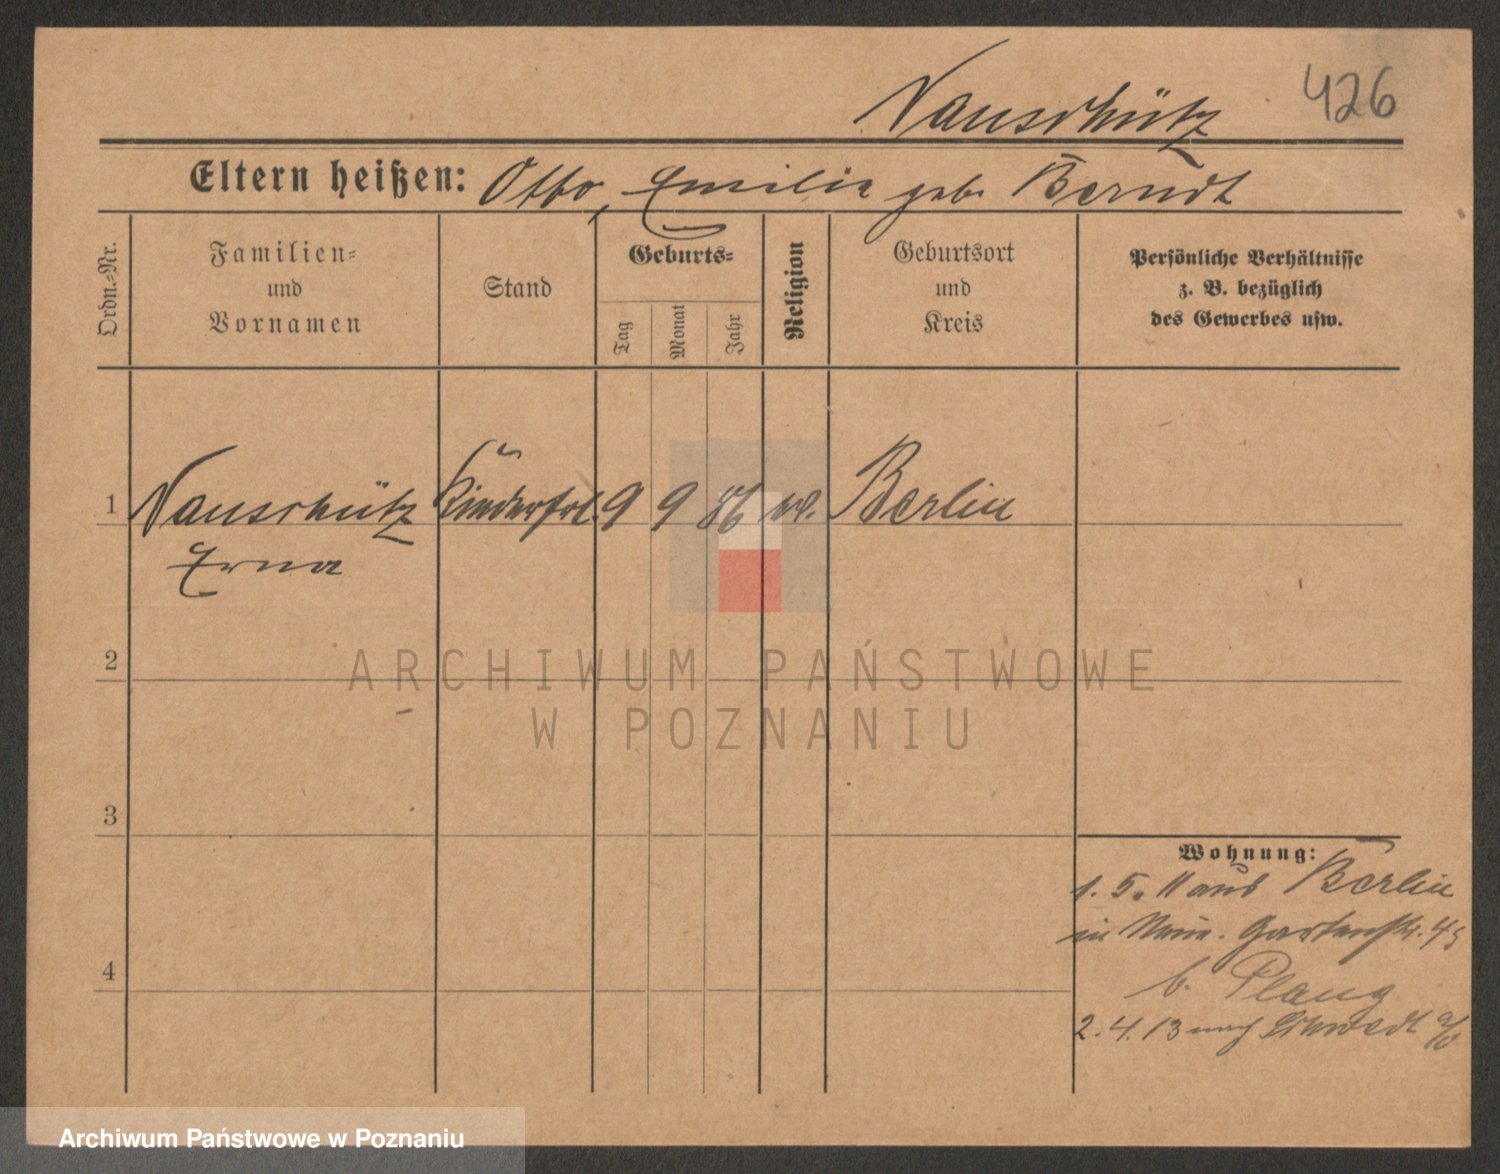 426
Nauschütz
Eltern heißen: Otto, Emilie geb. Berndt
Ordn.-Nr.
Familien-
und
Vornamen
Stand
Geburts-
Tag
Monat
Jahr
Religion
Geburtsort
und
Kreis
Persönliche Verhältnisse
z. B. bezüglich
des Gewerbes usw.
1 Nauschütz Kinderfrl. 9 9 86 Berlin
Erna
2
ARCHIWUM PAŃSTWOWE
W POZNANIU
3
Wohnung:
1. 5. 11 aus Berlin
in Gartenstr. 45
b.
4
2. 4. 13 nach Schwedt a/O
Archiwum Państwowe w Poznaniu